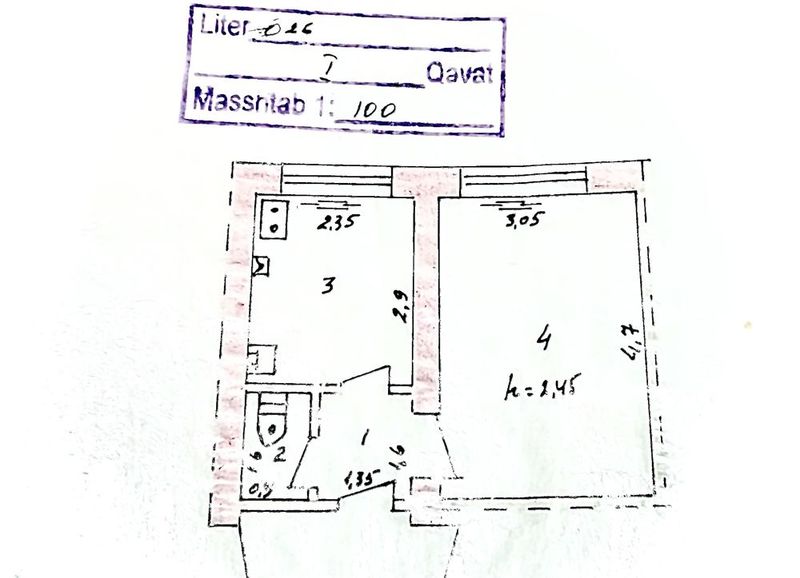 Liter 026
I Qavat
Masshtab 1: 100
2,35
3,05
3
2,9
4
4,7
h = 2,45
1
2
1,6
1,35
1,6